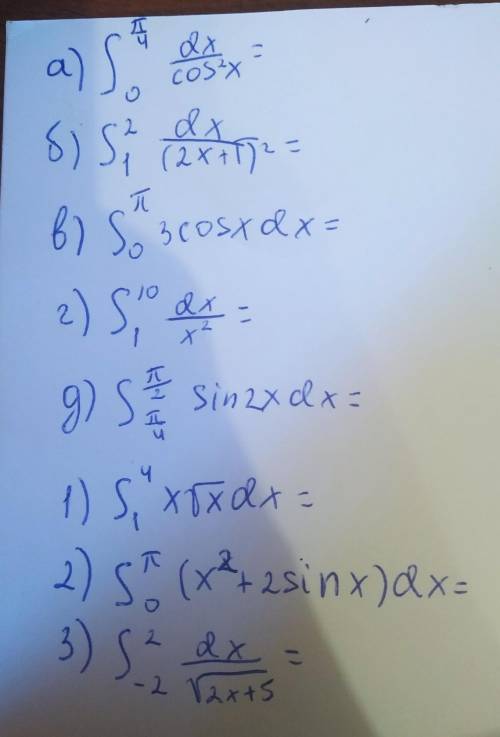 а) ∫₀^{π/4} dx/cos²x =
б) ∫₁² dx/(2x+1)² =
в) ∫₀^π 3cosxdx =
г) ∫₁¹⁰ dx/x² =
д) ∫_{π/4}^{π/2} sin2xdx =
1) ∫₁⁴ x√x dx =
2) ∫₀^π (x²+2sinx)dx =
3) ∫₋₂² dx/√(2x+5) =